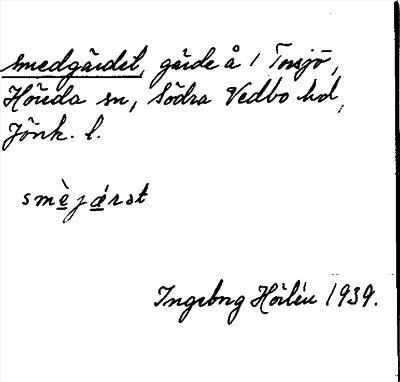 smedgärdet, gärde å 1 Torsjö,
Höreda sn, Södra Vedbo hd,
Jönk. l.
smè̱jǽ̱rət
Ingeborg Hörlén 1939.